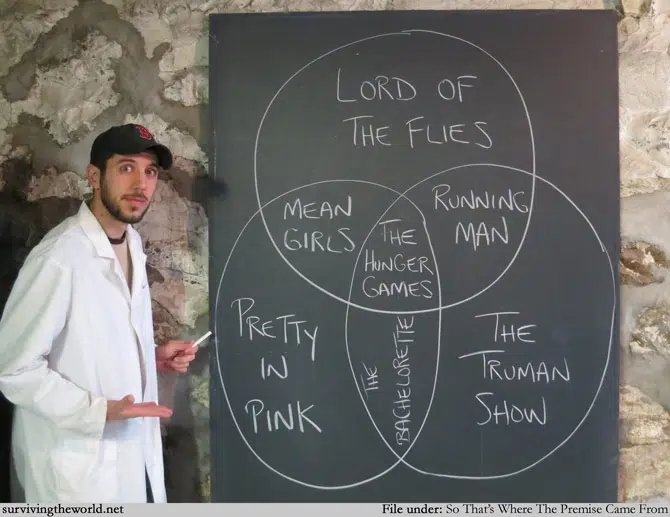 LORD OF
THE FLIES
MEAN
GIRLS
RUNNING
MAN
THE
HUNGER
GAMES
PRETTY
IN
PINK
THE
BACHELORETTE
THE
TRUMAN
SHOW
survivingtheworld.net
File under: So That's Where The Premise Came From